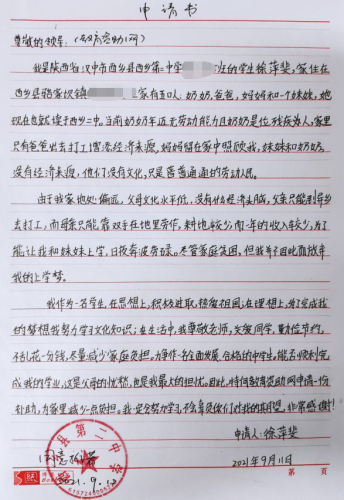 申请书
尊敬的领导:(教育资助网)
我是陕西省汉中市西乡县西乡第二中学 班的学生徐萍斐,家住在
西乡县骆家坝镇 家有五口人:奶奶,爸爸,妈妈和一个妹妹,她
现在也就读于西乡二中。当前奶奶年迈无劳动能力且奶奶是位残疾老人,家里
只有爸爸出去打工谋活经济来源,妈妈留在家中照顾我,妹妹和奶奶,
没有经济来源,他们没有文化,只是普普通通的劳动人民。
由于我家地处偏远,父母文化水平低,没有什么经济来源,父亲只能到异乡
去打工,而母亲只能靠双手在地里劳作,耕地较少,而一年的收入较少,为了
能让我和妹妹上学,日夜奔波劳碌。尽管家庭贫困,但我并不因此而放弃
我的上学梦。
我作为一名学生,在思想上,积极进取,热爱祖国;在理想上,为了完成我
的梦想我努力学习文化知识;在生活中,我尊敬老师,友爱同学,勤俭节约,
不乱花一分钱,尽量减少家庭负担。力争作一名全面发展,合格的中学生。能否顺利完
成我的学业,这是父母的忧愁,也是我最大的担忧。因此,特向教育资助网申请一份
补助,为家里减少一点负担。我一定努力学习,不会辜负你们对我的期望,非常感谢!
申请人:徐萍斐
2021年9月11日
县第二中学
2021.9.
第 页